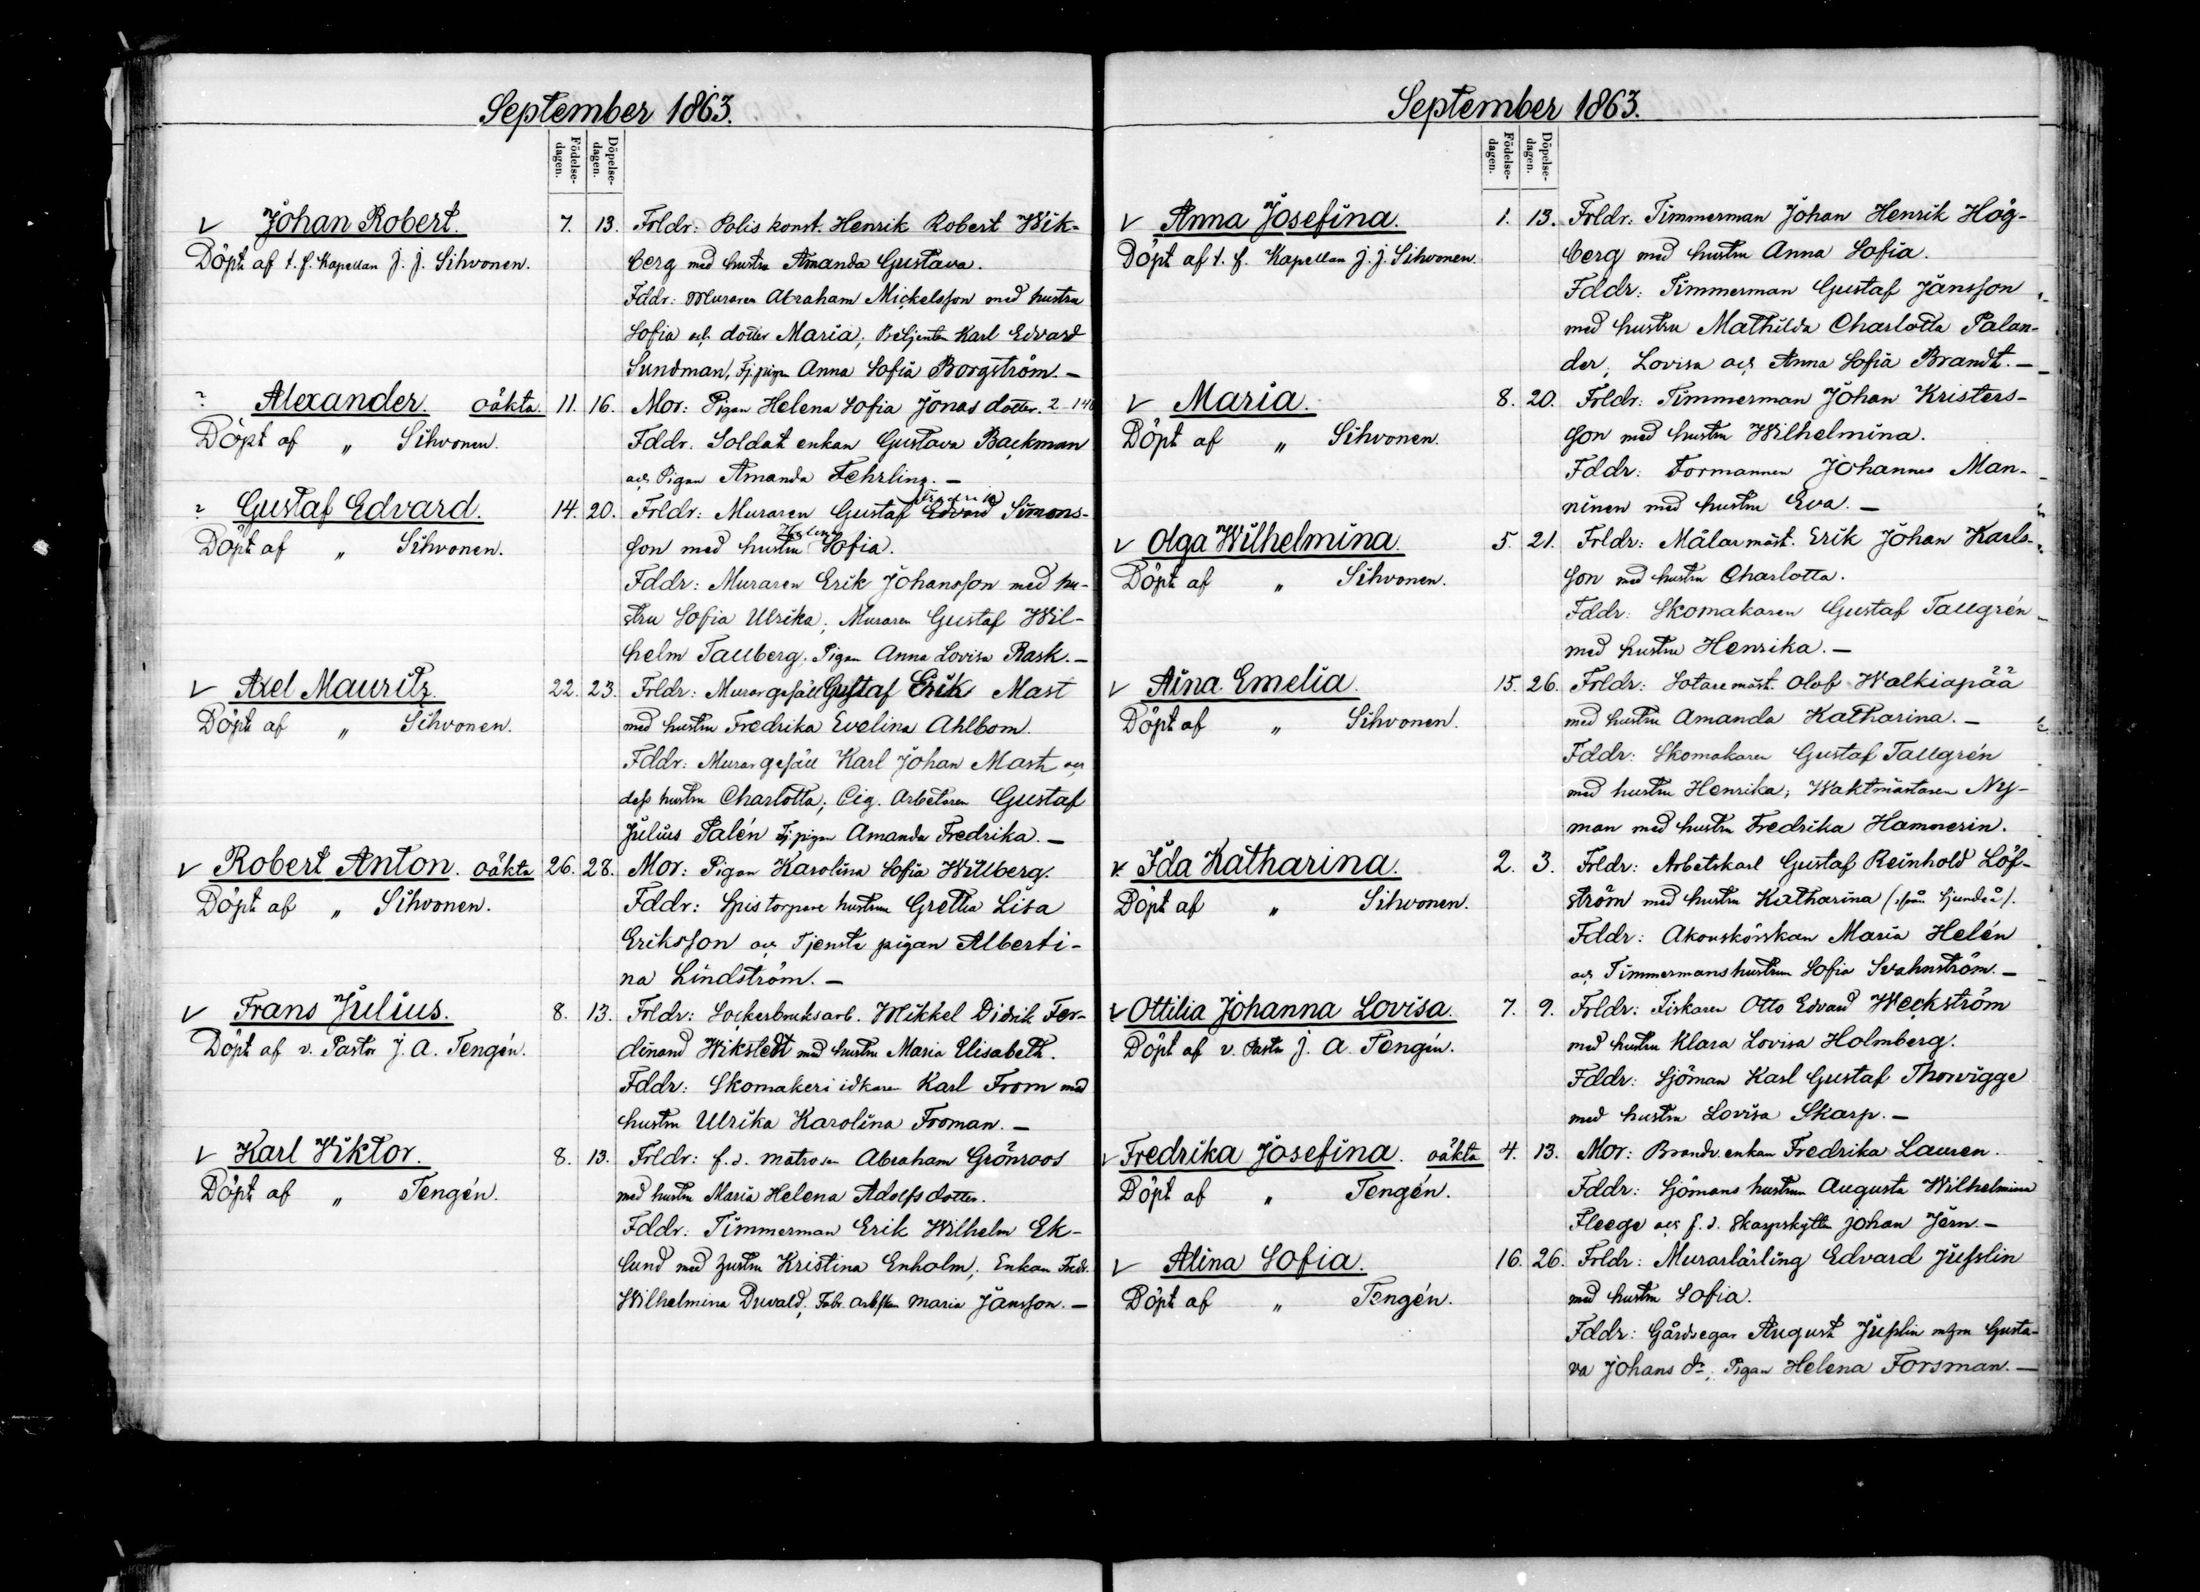 September 1863.
Födelse-dagen. Döpelse-dagen.
Johan Robert. 7. 13. Frldr: Polis konst. Henrik Robert Wik-
Döpt af t. f. Kapellan J. J. Sihvonen. berg med hustru Amanda Gustava.
Fddr: Muraren Abraham Mickelsson med hustru
Sofia och dotter Maria; Betjenten Karl Edvard
Sundman, Tj. pigan Anna Sofia Borgström. —
Alexander. oäkta. 11. 16. Mor: Pigan Helena Sofia Jonas dotter. 2
Döpt af „ Sihvonen. Fddr. Soldat enkan Gustava Backman
och Pigan Amanda Fehrling. —
Gustaf Edvard. 14. 20. Frldr: Muraren Gustaf Edvard Fredrik Simons-
Döpt af „ Sihvonen. son med hustru Sofia.
Fddr: Muraren Erik Johansson med hu-
stru Sofia Ulrika; Muraren Gustaf Wil-
helm Tallberg, Pigan Anna Lovisa Rask. —
Axel Mauritz. 22. 23. Frldr: Murargesäll Gustaf Erik Mast
Döpt af „ Sihvonen. med hustru Fredrika Evelina Ahlbom.
Fddr: Murargesäll Karl Johan Mast och
dess hustru Charlotta; Cig. Arbetaren Gustaf
Julius Palén Tj. pigan Amanda Fredrika. —
Robert Anton. oäkta 26. 28. Mor: Pigan Karolina Sofia Willberg.
Döpt af „ Sihvonen. Fddr: Spistorpare hustrun Gretha Lisa
Eriksson och Tjenste pigan Alberti-
na Lindström. —
Frans Julius. 8. 13. Frldr: Sockerbruksarb. Mikkel Didrik Fer-
Döpt af v. Pastor J. A. Tengén. dinand Wikstedt med hustru Maria Elisabeth.
Fddr: Skomakeri idkaren Karl From med
hustru Ulrika Karolina Froman. —
Karl Wiktor. 8. 13. Frldr: f. d. matrosen Abraham Grönroos
Döpt af „ Tengén. med hustru Maria Helena Adolfs dotter.
Fddr: Timmerman Erik Wilhelm Ek-
lund med hustru Kristina Enholm; Enkan Fredr.
Wilhelmina Duvald, Fabr. arbfkan Maria Jansson. —
September 1863.
Födelse-dagen. Döpelse-dagen.
Anna Josefina. 1. 13. Frldr: Timmerman Johan Henrik Hög-
Döpt af t. f. Kapellan J. J. Sihvonen. berg med hustru Anna Sofia.
Fddr: Timmerman Gustaf Jansson
med hustru Mathilda Charlotta Palan-
der, Lovisa och Anna Sofia Brandt. —
Maria. 8. 20. Frldr: Timmerman Johan Kristers-
Döpt af „ Sihvonen. son med hustru Wilhelmina.
Fddr: Formannen Johannes Man-
ninen med hustru Eva. —
Olga Wilhelmina. 5. 21. Frldr: Målarmäst. Erik Johan Karls-
Döpt af „ Sihvonen. son med hustru Charlotta.
Fddr: Skomakaren Gustaf Tallgrén
med hustru Henrika. —
Aina Emelia. 15. 26. Frldr: Sotaremäst. Olof Walkiapää
Döpt af „ Sihvonen. med hustru Amanda Katharina. —
Fddr: Skomakaren Gustaf Tallgrén
med hustru Henrika; Waktmästaren Ny-
man med hustru Fredrika Hamnerin.
Ida Katharina. 2. 3. Frldr: Arbetskarl Gustaf Reinhold Löf-
Döpt af „ Sihvonen. ström med hustru Katharina (från Sjundeå).
Fddr: Maria Helén
och Timmermanshustrun Sofia Svahnström. —
Ottilia Johanna Lovisa. 7. 9. Frldr: Fiskaren Otto Edvard Weckström
Döpt af v. Pastor J. A. Tengén. med hustru Klara Lovisa Holmberg.
Fddr: Sjöman Karl Gustaf Thorvigge
med hustru Lovisa Skarp. —
Fredrika Josefina. oäkta 4. 13. Mor: Brandv. enkan Fredrika Lauren.
Döpt af „ Tengén. Fddr: Sjömans hustrun Augusta Wilhelmina
Fleege och f. d. Skarpskytten Johan Jern. —
Alina Sofia. 16. 26. Frldr: Murarlärling Edvard Jusslin
Döpt af „ Tengén. med hustru Sofia.
Fddr: Gårdsegar August Jusslin Gusta-
va Johans dr; Pigan Helena Forsman. —